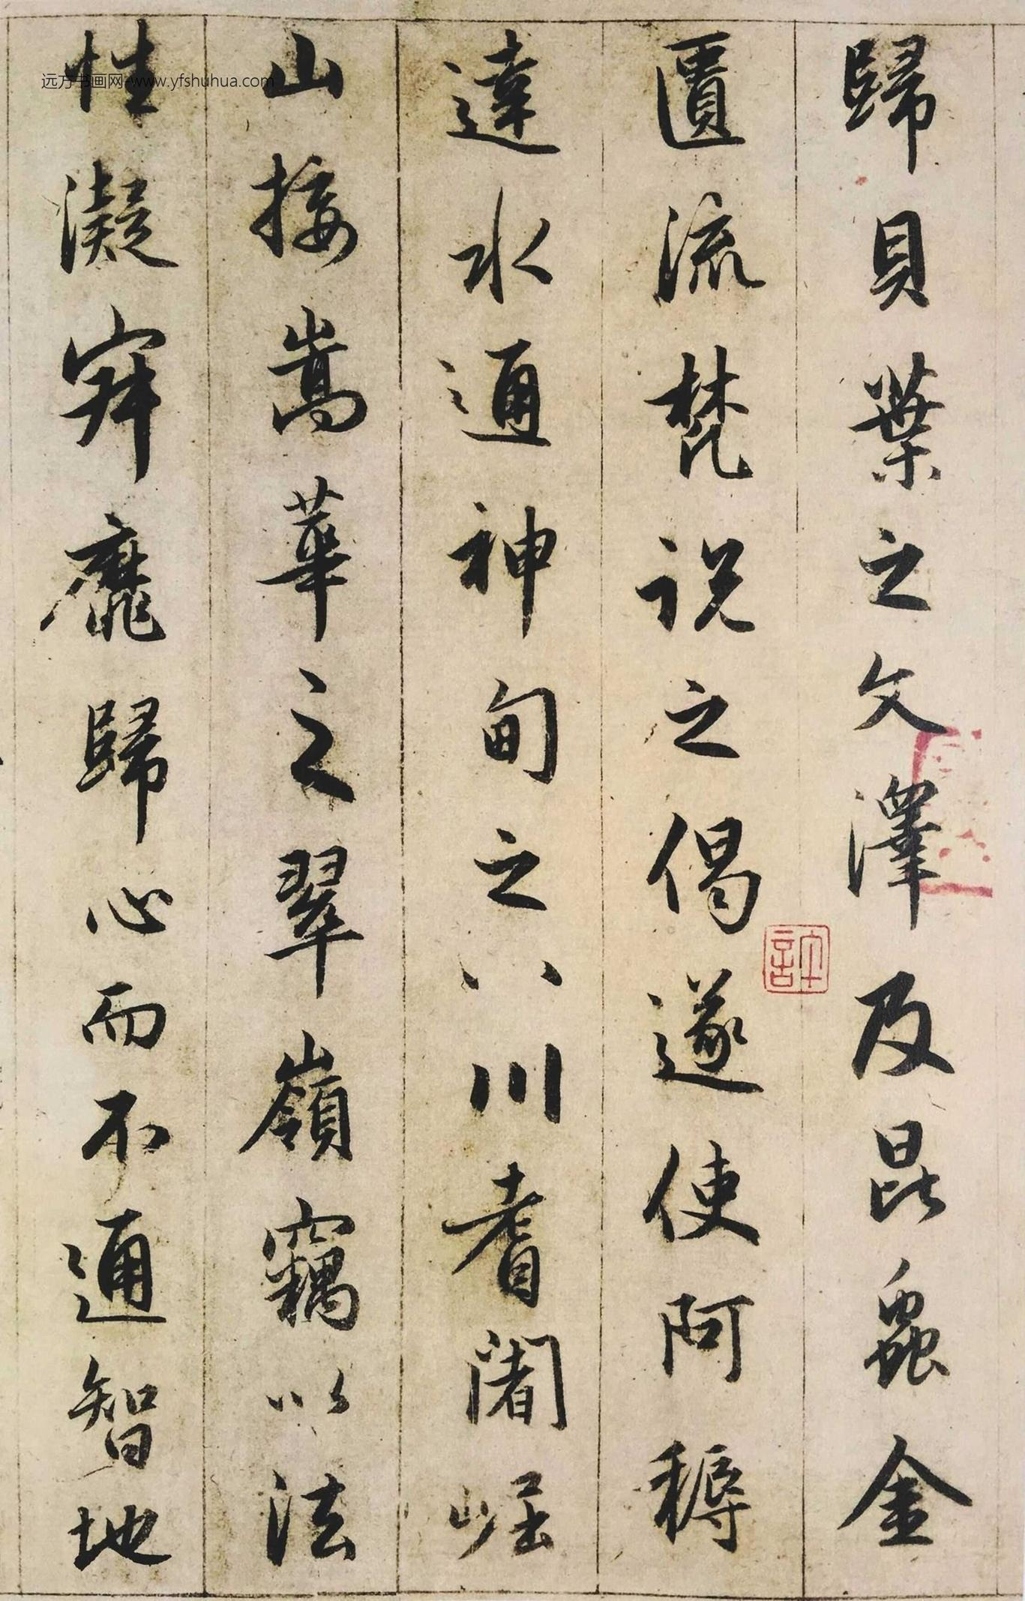 歸貝葉之文澤及昆蟲金
匱流梵説之偈遂使阿耨
達水通神甸之八川耆闍崛
山接嵩華之翠嶺竊以法
性凝寂靡歸心而不通智地
远方书画网 www.yfshuhua.com